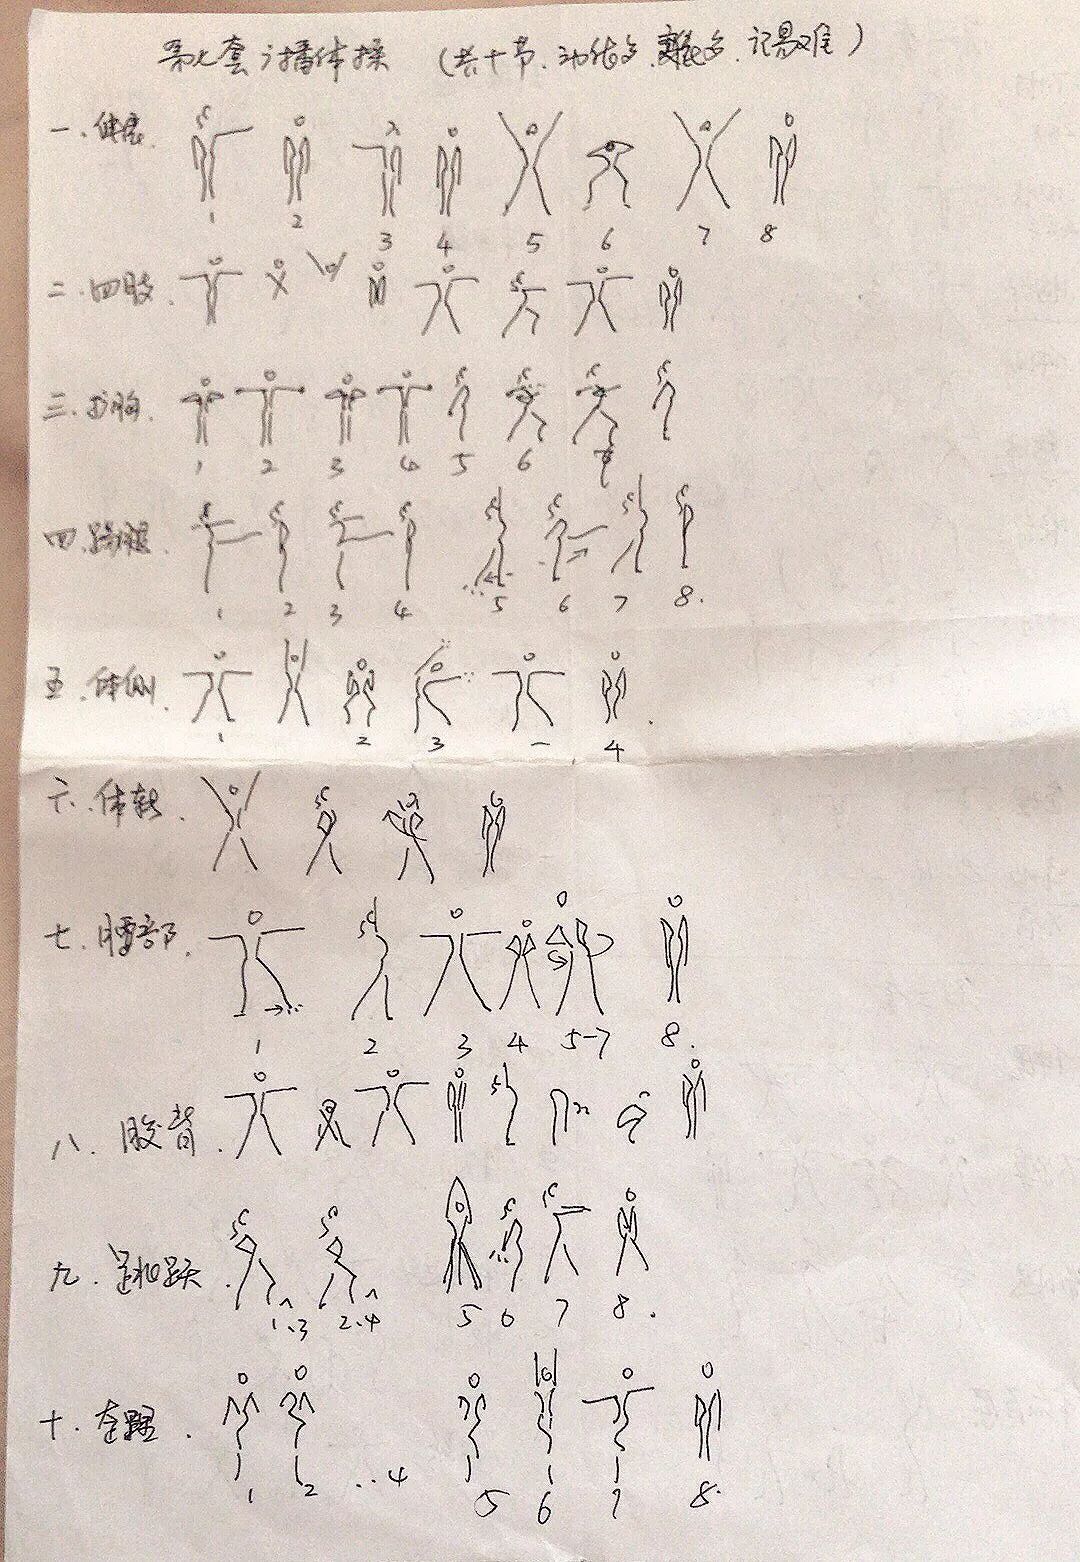 第七套广播体操 (共十节、动作多、难记、记易难)
一、伸展
1 2 3 4 5 6 7 8
二、四肢.
三、扩胸.
1 2 3 4 5 6 7
四、踢腿.
1 2 3 4 5 6 7 8.
五、体侧.
1 2 3 4
六、体转.
七、腰部.
1 2 3 4 5-7 8.
八、腹背.
九、跳跃.
1.3 2.4 5 6 7 8.
十、
1 2 ..4 5 6 7 8.